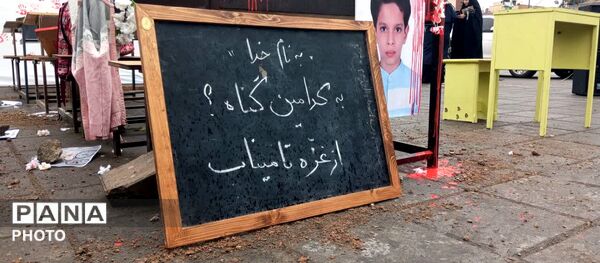 " به نام خدا "
به کدامین گناه ؟
از غزّه تا میناب
PANA
PHOTO